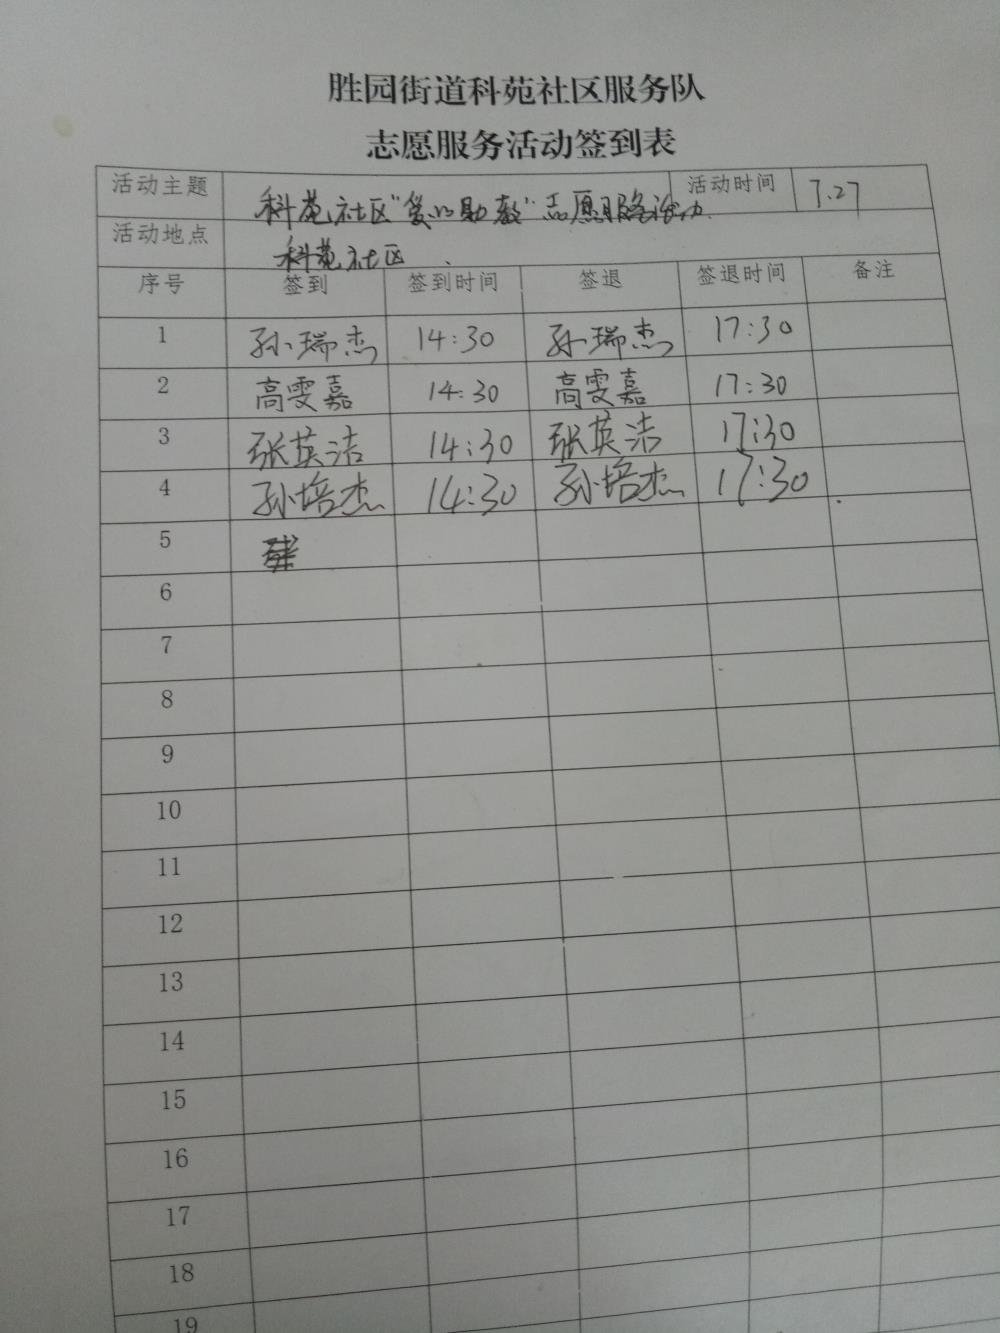 胜园街道科苑社区服务队
志愿服务活动签到表
活动主题 科苑社区"爱心助教"志愿服务活动 活动时间 7.27
活动地点 科苑社区
序号 签到 签到时间 签退 签退时间 备注
1 孙瑞杰 14:30 孙瑞杰 17:30
2 高雯嘉 14:30 高雯嘉 17:30
3 张英洁 14:30 张英洁 17:30
4 孙培杰 14:30 孙培杰 17:30
5
6
7
8
9
10
11
12
13
14
15
16
17
18
19